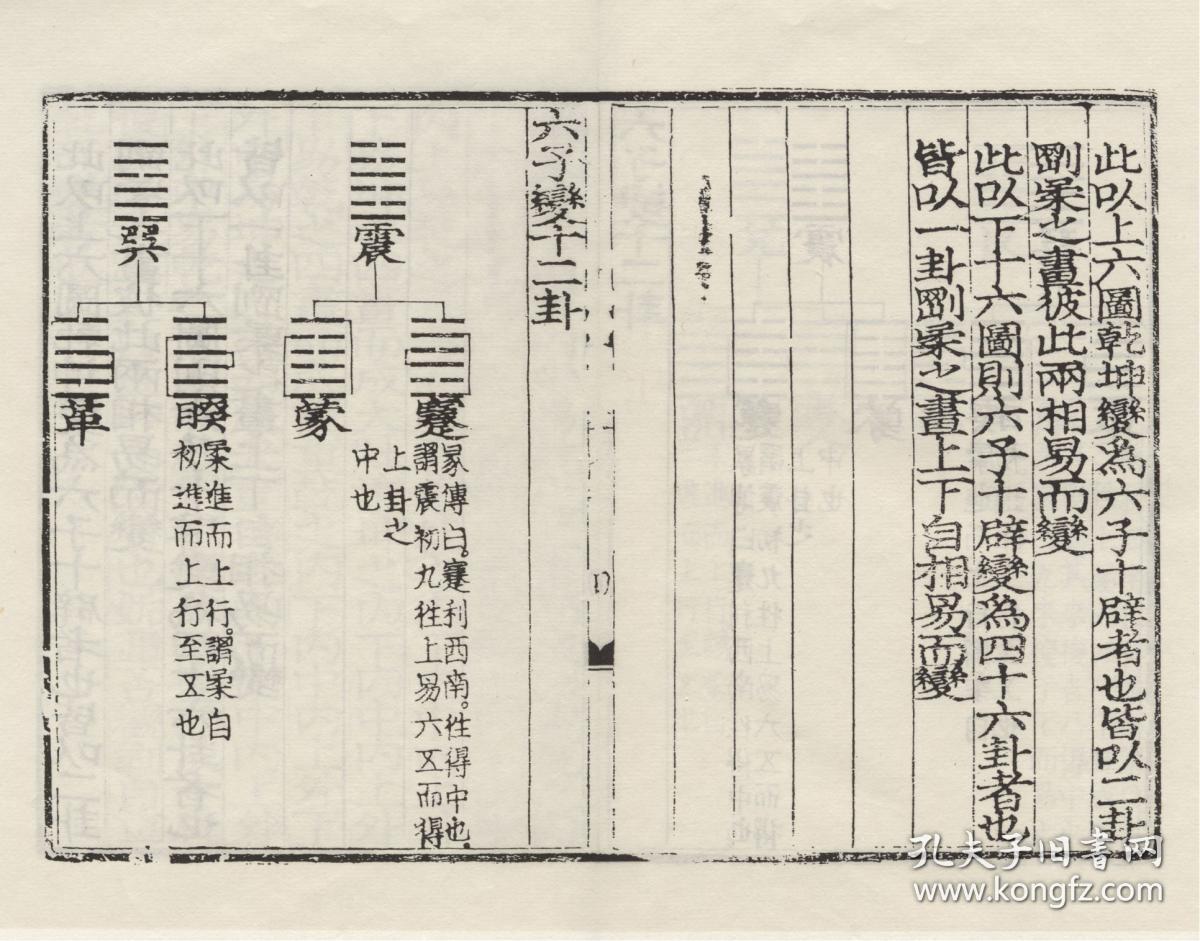 此以上六圖乾坤變爲六子十辟者也皆以二卦
剛柔之畫彼此兩相易而變
此以下十六圖則六子十辟變爲四十六卦者也
皆以一卦剛柔之畫上下自相易而變
六子變十二卦
震
蹇
彖傳曰。蹇利西南。徃得中也。
謂震初九徃上易六五而得
上卦之
中也
蒙
巽
睽
柔進而上行。謂柔自
初進而上行至五也
革
孔夫子旧书网
www.kongfz.com